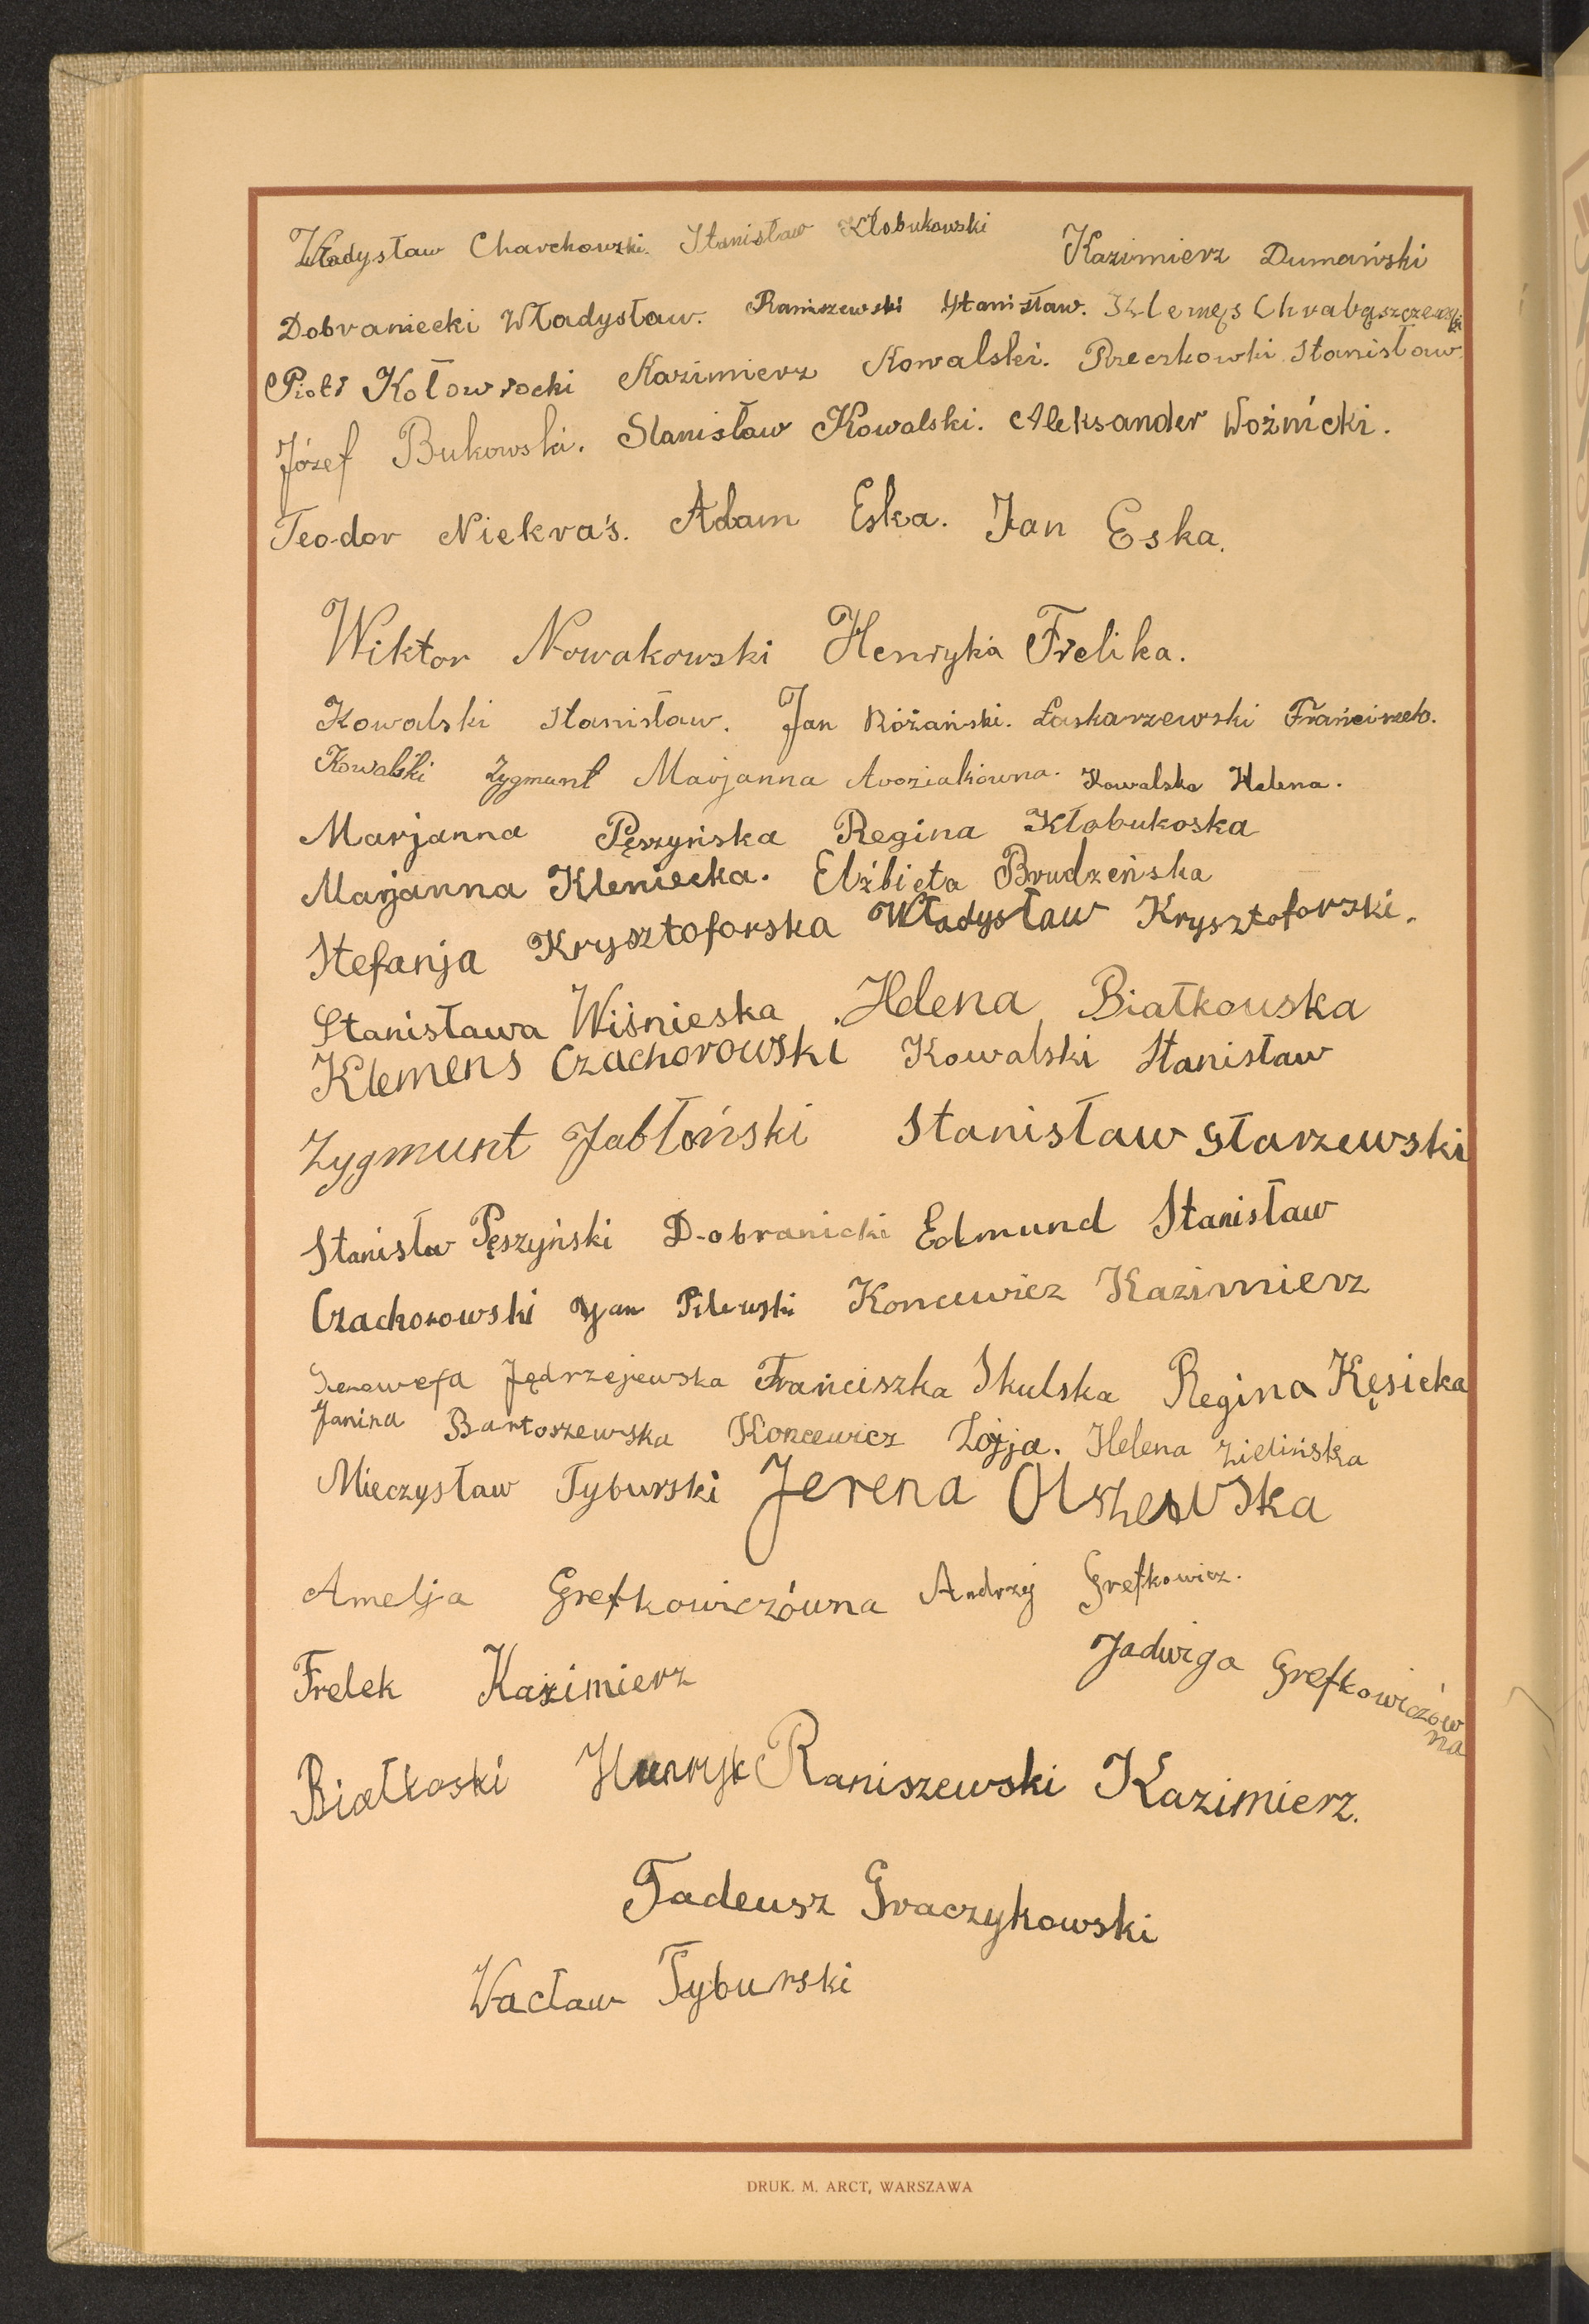 Władysław Charchowski. Stanisław Kłobukowski Kazimierz Dumański
Dobraniecki Władysław. Raniszewski Stanisław. Klemęs
Piotr Kołowrocki Kazimierz Kowalski. Rzeczkowki Stanisław
Józef Bukowski. Stanisław Kowalski. Aleksander Woźnicki.
Teodor Niekraś. Adam Eska. Jan Eska.
Wiktor Nowakowski Henryka Frelika.
Kowalski Stanisław. Jan Różański. Łaskarzewski Frańciszek.
Kowalski Zygmunt Marjanna Kowalska Helena.
Marjanna Pęszyńska Regina Kłobukoska
Marjanna Kleniecka. Elżbieta Brudzeńska
Stefanja Krysztoforska Władysław Krysztoforski.
Stanisława Wiśnieska Helena Białkouska
Klemens Czachorowski Kowalski Stanisław
Zygmunt Jabłoński Stanisław Starzewski
Stanisłw Pęszyński D-obranicki Edmund Stanisław
Czachorowski Jan Pilewski Koncewicz Kazimierz
Genowefa Jędrzejewska Frańciszka Skulska Regina Kęsicka
Janina Bartoszewska Koncewicz Zofja. Helena Zielińska
Mieczysław Tyburski Jerena Olszewska
Amelja Grefkowiczówna Andrzej Grefkowicz.
Frelek Kazimierz Jadwiga Grefkowiczów
na
Białkoski Henryk Raniszewski Kazimierz.
Tadeusz Graczykowski
Wacław Tyburski
DRUK. M. ARCT, WARSZAWA